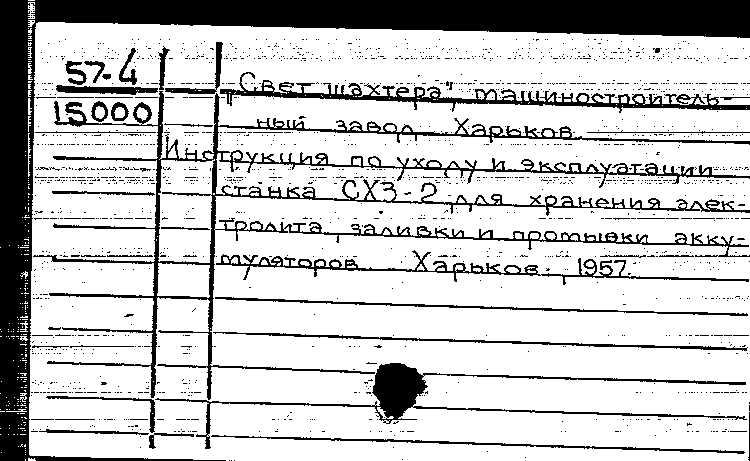 57-4
15000
"Свет шахтера", машиностроитель-
ный завод. Харьков.
Инструкция по уходу и эксплуатации
станка СХЗ-2 для хранения элек-
тролита, заливки и промывки акку-
муляторов. Харьков, 1957.